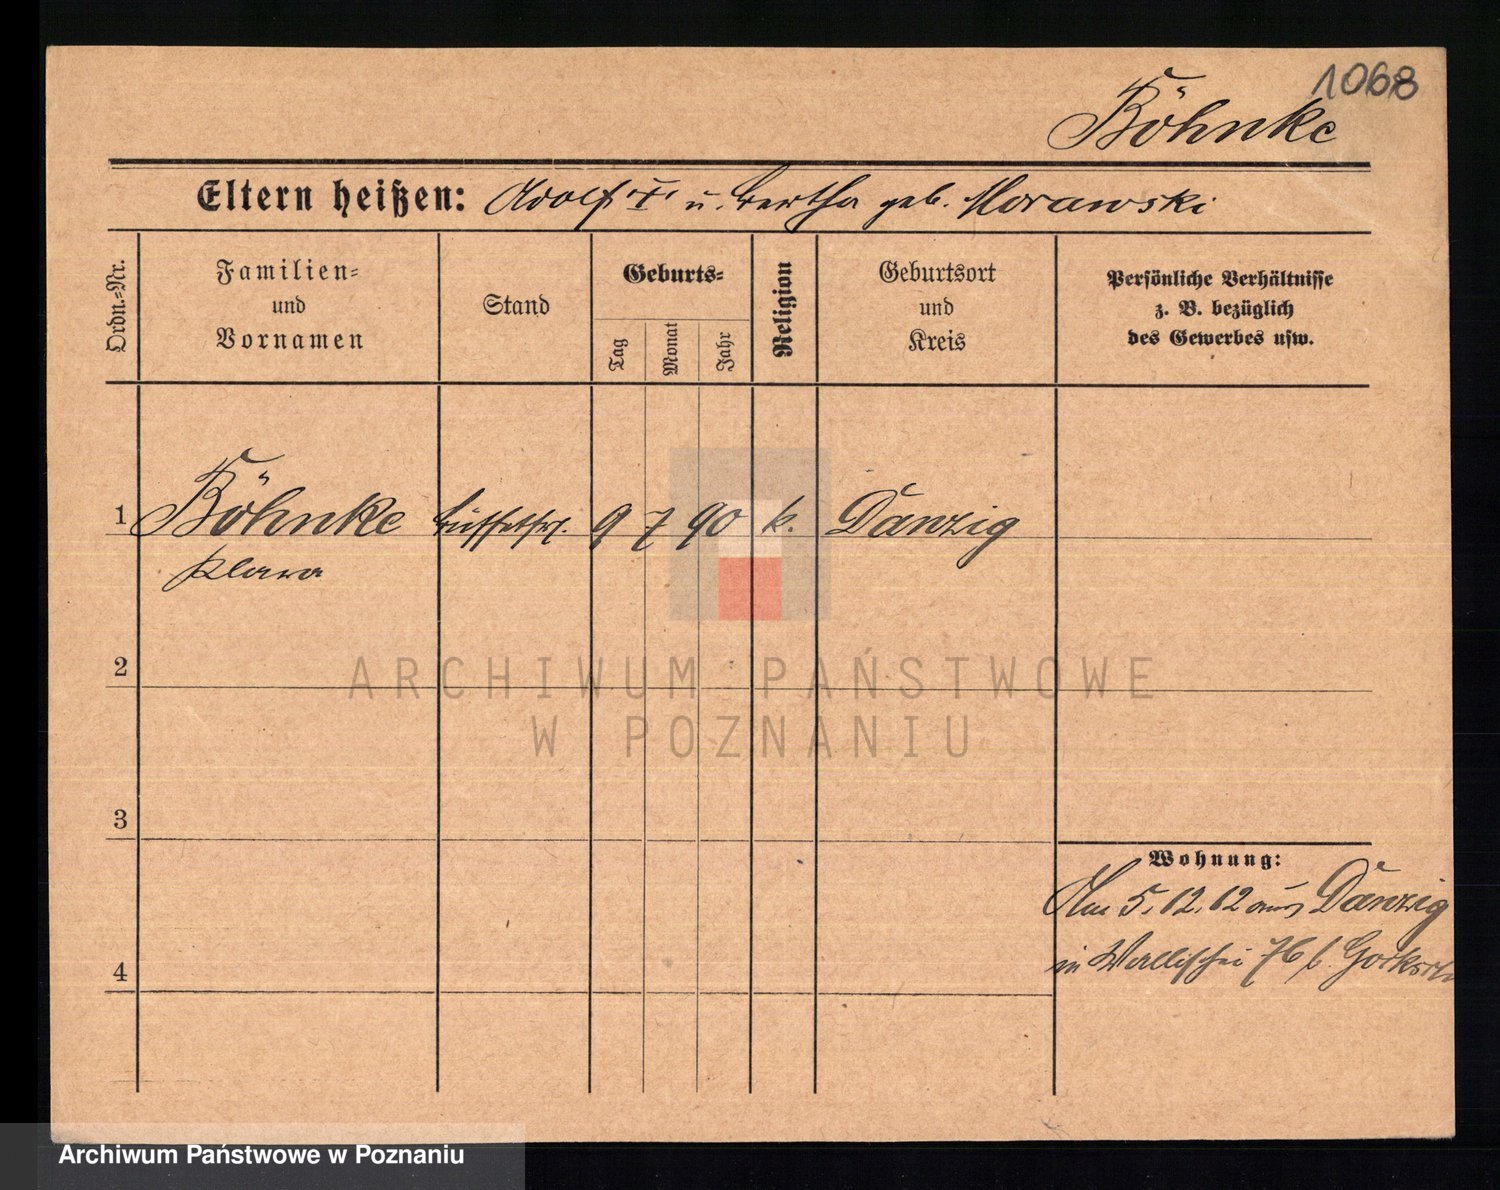 1068
Böhnke
Eltern heißen: Adolf "†" u. Bertha geb. Morawski
Ordn.=Nr.
Familien=
und
Vornamen
Stand
Geburts=
Tag
Monat
Jahr
Religion
Geburtsort
und
Kreis
Persönliche Verhältnisse
z. B. bezüglich
des Gewerbes usw.
1 Böhnke Büffetfrl. 9 7 90 k. Danzig
Klara
2
ARCHIWUM PAŃSTWOWE
W POZNANIU
3
Wohnung:
Am 5.12.12 aus Danzig
in Wallischei 76 b.
4
Archiwum Państwowe w Poznaniu